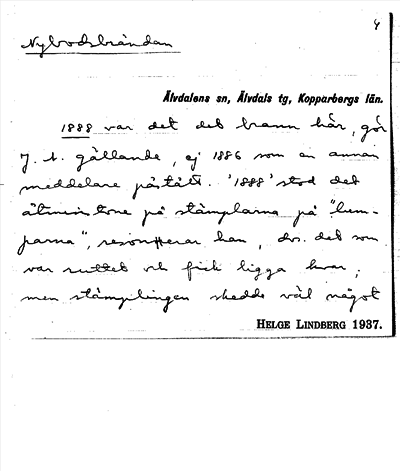 4
Nybodsbrändan
Älvdalens sn, Älvdals tg, Kopparbergs län.
1888 var det det brann här, gör
J. A. gällande, ej 1886 som en annan
meddelare påstått. '1888' stod det
åtminstone på stämplarna på "lum-
parna", resonerar han, dvs. det som
var ruttet och fick ligga kvar;
men stämplingen skedde väl något
HELGE LINDBERG 1937.